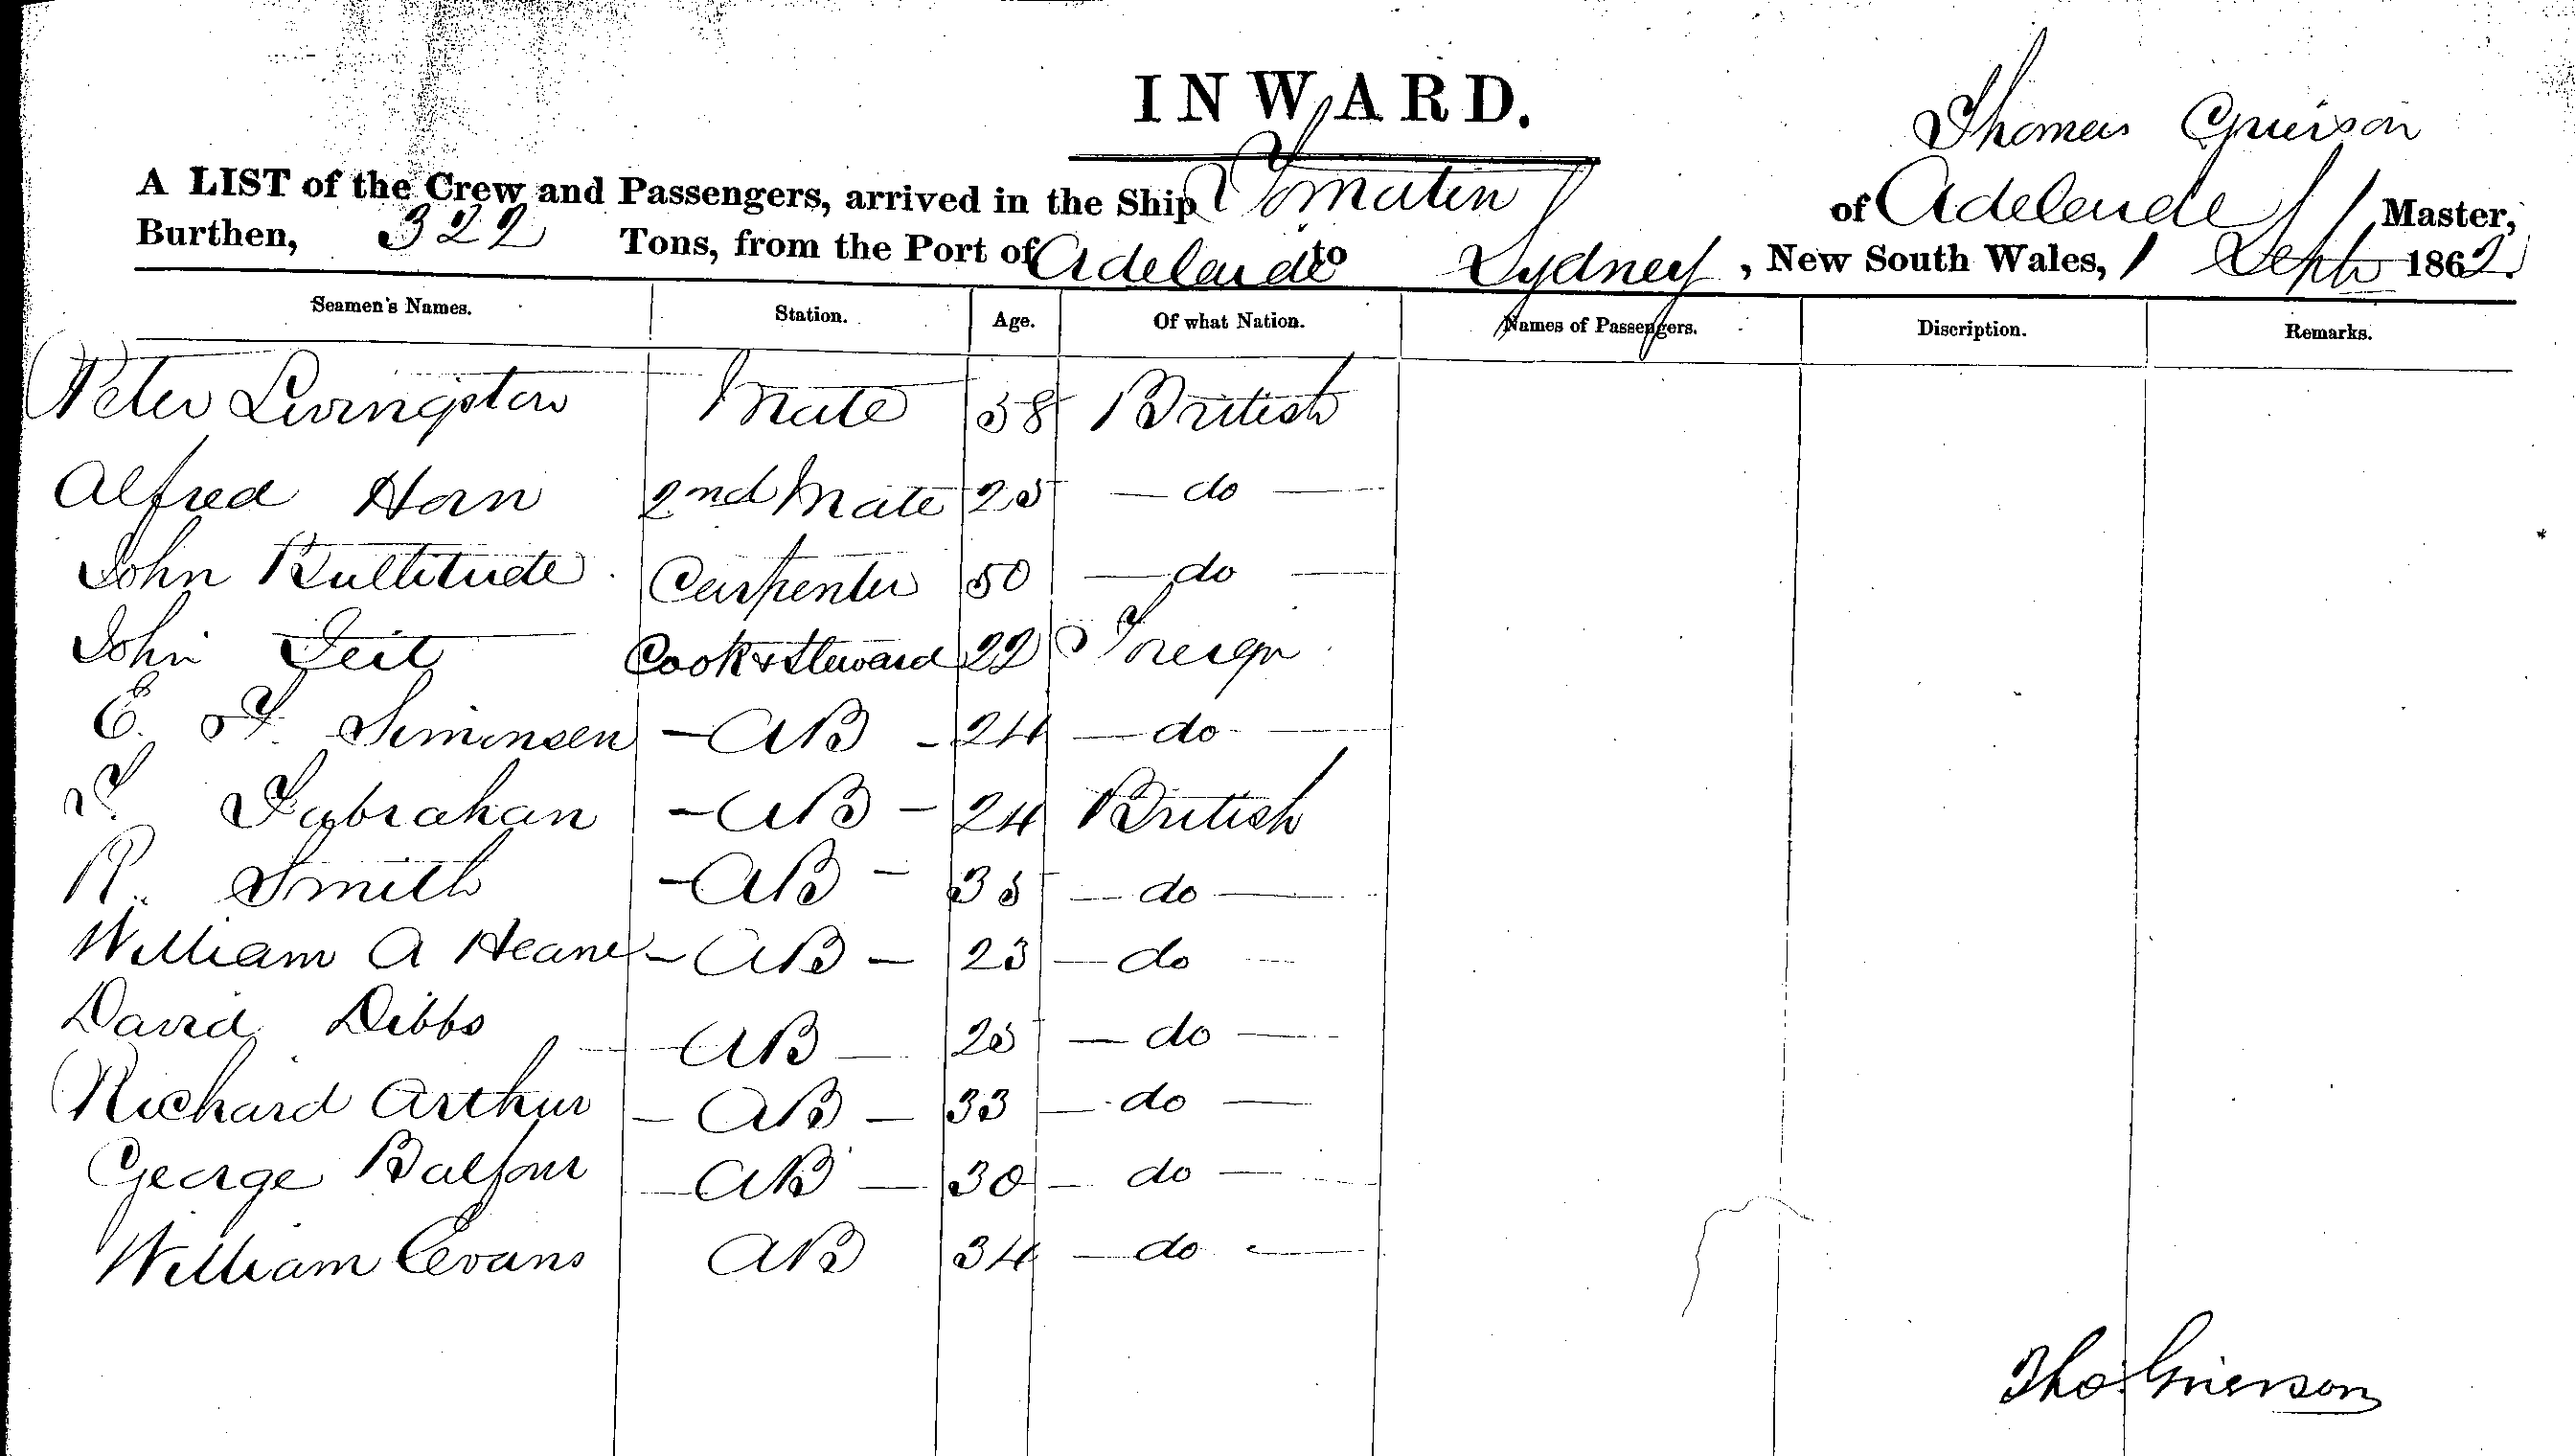 INWARD.
Thomas Grierson
A LIST of the Crew and Passengers, arrived in the Ship Tomatin of Adelaide Master,
Burthen, 322 Tons, from the Port of Adelaide to Sydney, New South Wales, 1 Sept 1862.
Seamen's Names. Station. Age. Of what Nation. Names of Passengers. Discription. Remarks.
Peter Livingston Mate 38 British
Alfred Horn 2nd Mate 25 — do —
John Bultitude Carpenter 50 — do —
John Cook & Steward 22 Foreign
E. F. Simonsen — AB — 24 — do —
— AB — 24 British
R. Smith — AB — 35 — do —
William A Heane — AB — 23 — do —
David Dibbs — AB — 25 — do —
Richard Arthur — AB — 33 — do —
George Balfour — AB — 30 — do —
William Evans AB 34 — do —
Tho. Grierson